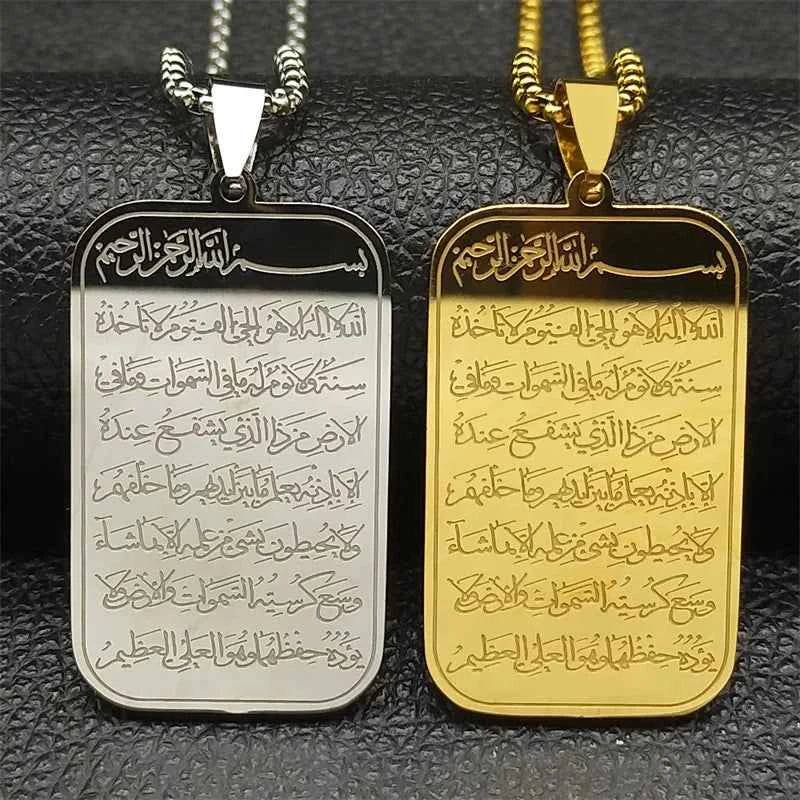 بسم الله الرحمن الرحيم
الله لا إله إلا هو الحي القيوم لا تأخذه
سنة ولا نوم له ما في السموات وما في
الارض من ذا الذي يشفع عنده
إلا بإذنه يعلم ما بين أيديهم وما خلفهم
ولا يحيطون بشيء من علمه إلا بما شاء
وسع كرسيه السموات والارض ولا
يؤده حفظهما وهو العلي العظيم
بسم الله الرحمن الرحيم
الله لا إله إلا هو الحي القيوم لا تأخذه
سنة ولا نوم له ما في السموات وما في
الارض من ذا الذي يشفع عنده
إلا بإذنه يعلم ما بين أيديهم وما خلفهم
ولا يحيطون بشيء من علمه إلا بما شاء
وسع كرسيه السموات والارض ولا
يؤده حفظهما وهو العلي العظيم